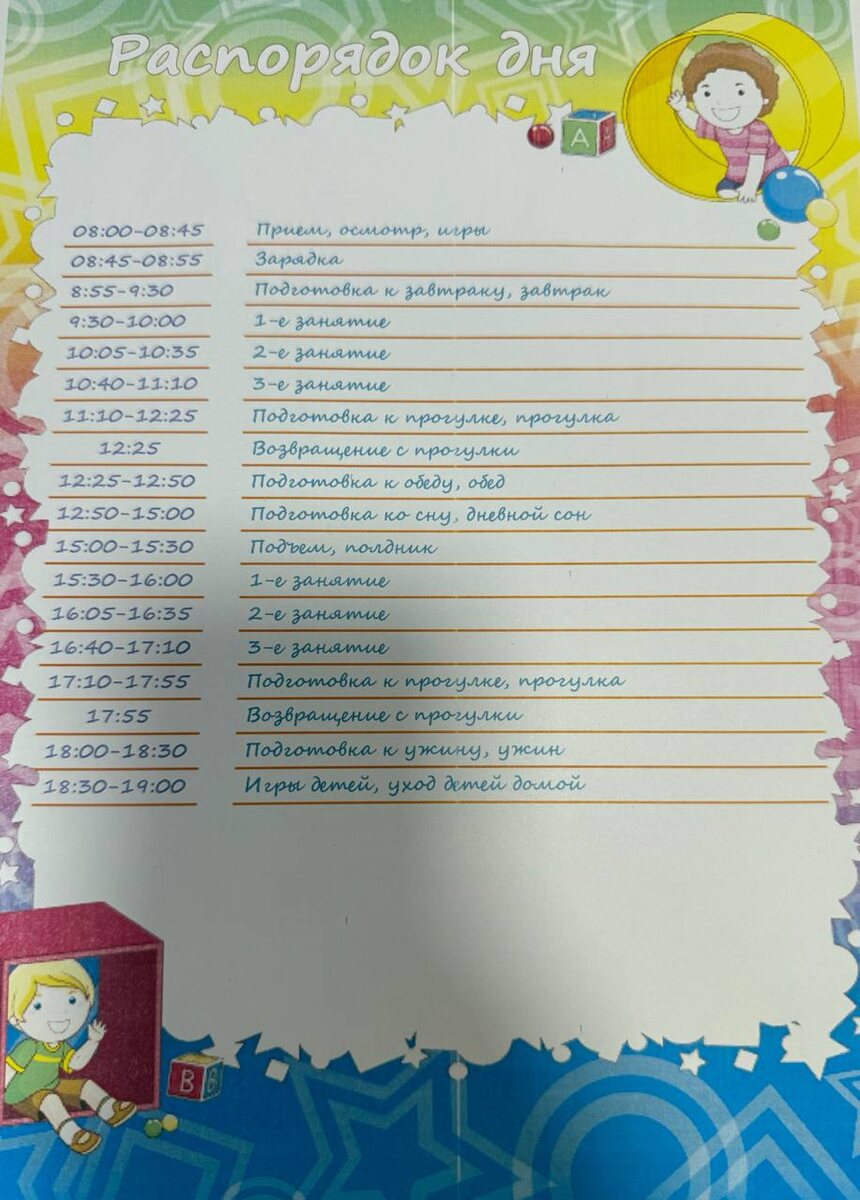 Распорядок дня
A
08:00-08:45 Прием, осмотр, игры
08:45-08:55 Зарядка
8:55-9:30 Подготовка к завтраку, завтрак
9:30-10:00 1-е занятие
10:05-10:35 2-е занятие
10:40-11:10 3-е занятие
11:10-12:25 Подготовка к прогулке, прогулка
12:25 Возвращение с прогулки
12:25-12:50 Подготовка к обеду, обед
12:50-15:00 Подготовка ко сну, дневной сон
15:00-15:30 Подъем, полдник
15:30-16:00 1-е занятие
16:05-16:35 2-е занятие
16:40-17:10 3-е занятие
17:10-17:55 Подготовка к прогулке, прогулка
17:55 Возвращение с прогулки
18:00-18:30 Подготовка к ужину, ужин
18:30-19:00 Игры детей, уход детей домой
B B